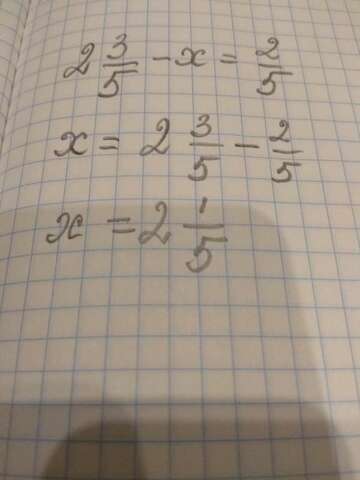 2 3/5 - x = 2/5
x = 2 3/5 - 2/5
x = 2 1/5